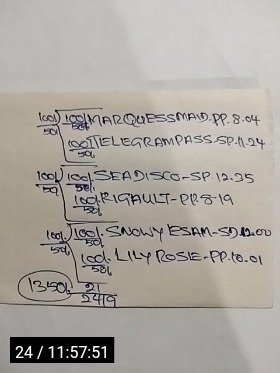 100/ 100/ MARQUESSMAID.PP.8.04
50/ 50/
100/ TELEGRAMPASS-SP.11.24
50/
100/ 100/ SEADISCO-SP.12.35
50/ 50/
100/ RIGAULT-PP.8-19
50/
100/. 100/. SNOWY ESAM-SD.12.00
50/ 50/
100/. LILY ROSIE-PP.10.01
50/
1350/. 21
2419
24 / 11:57:51